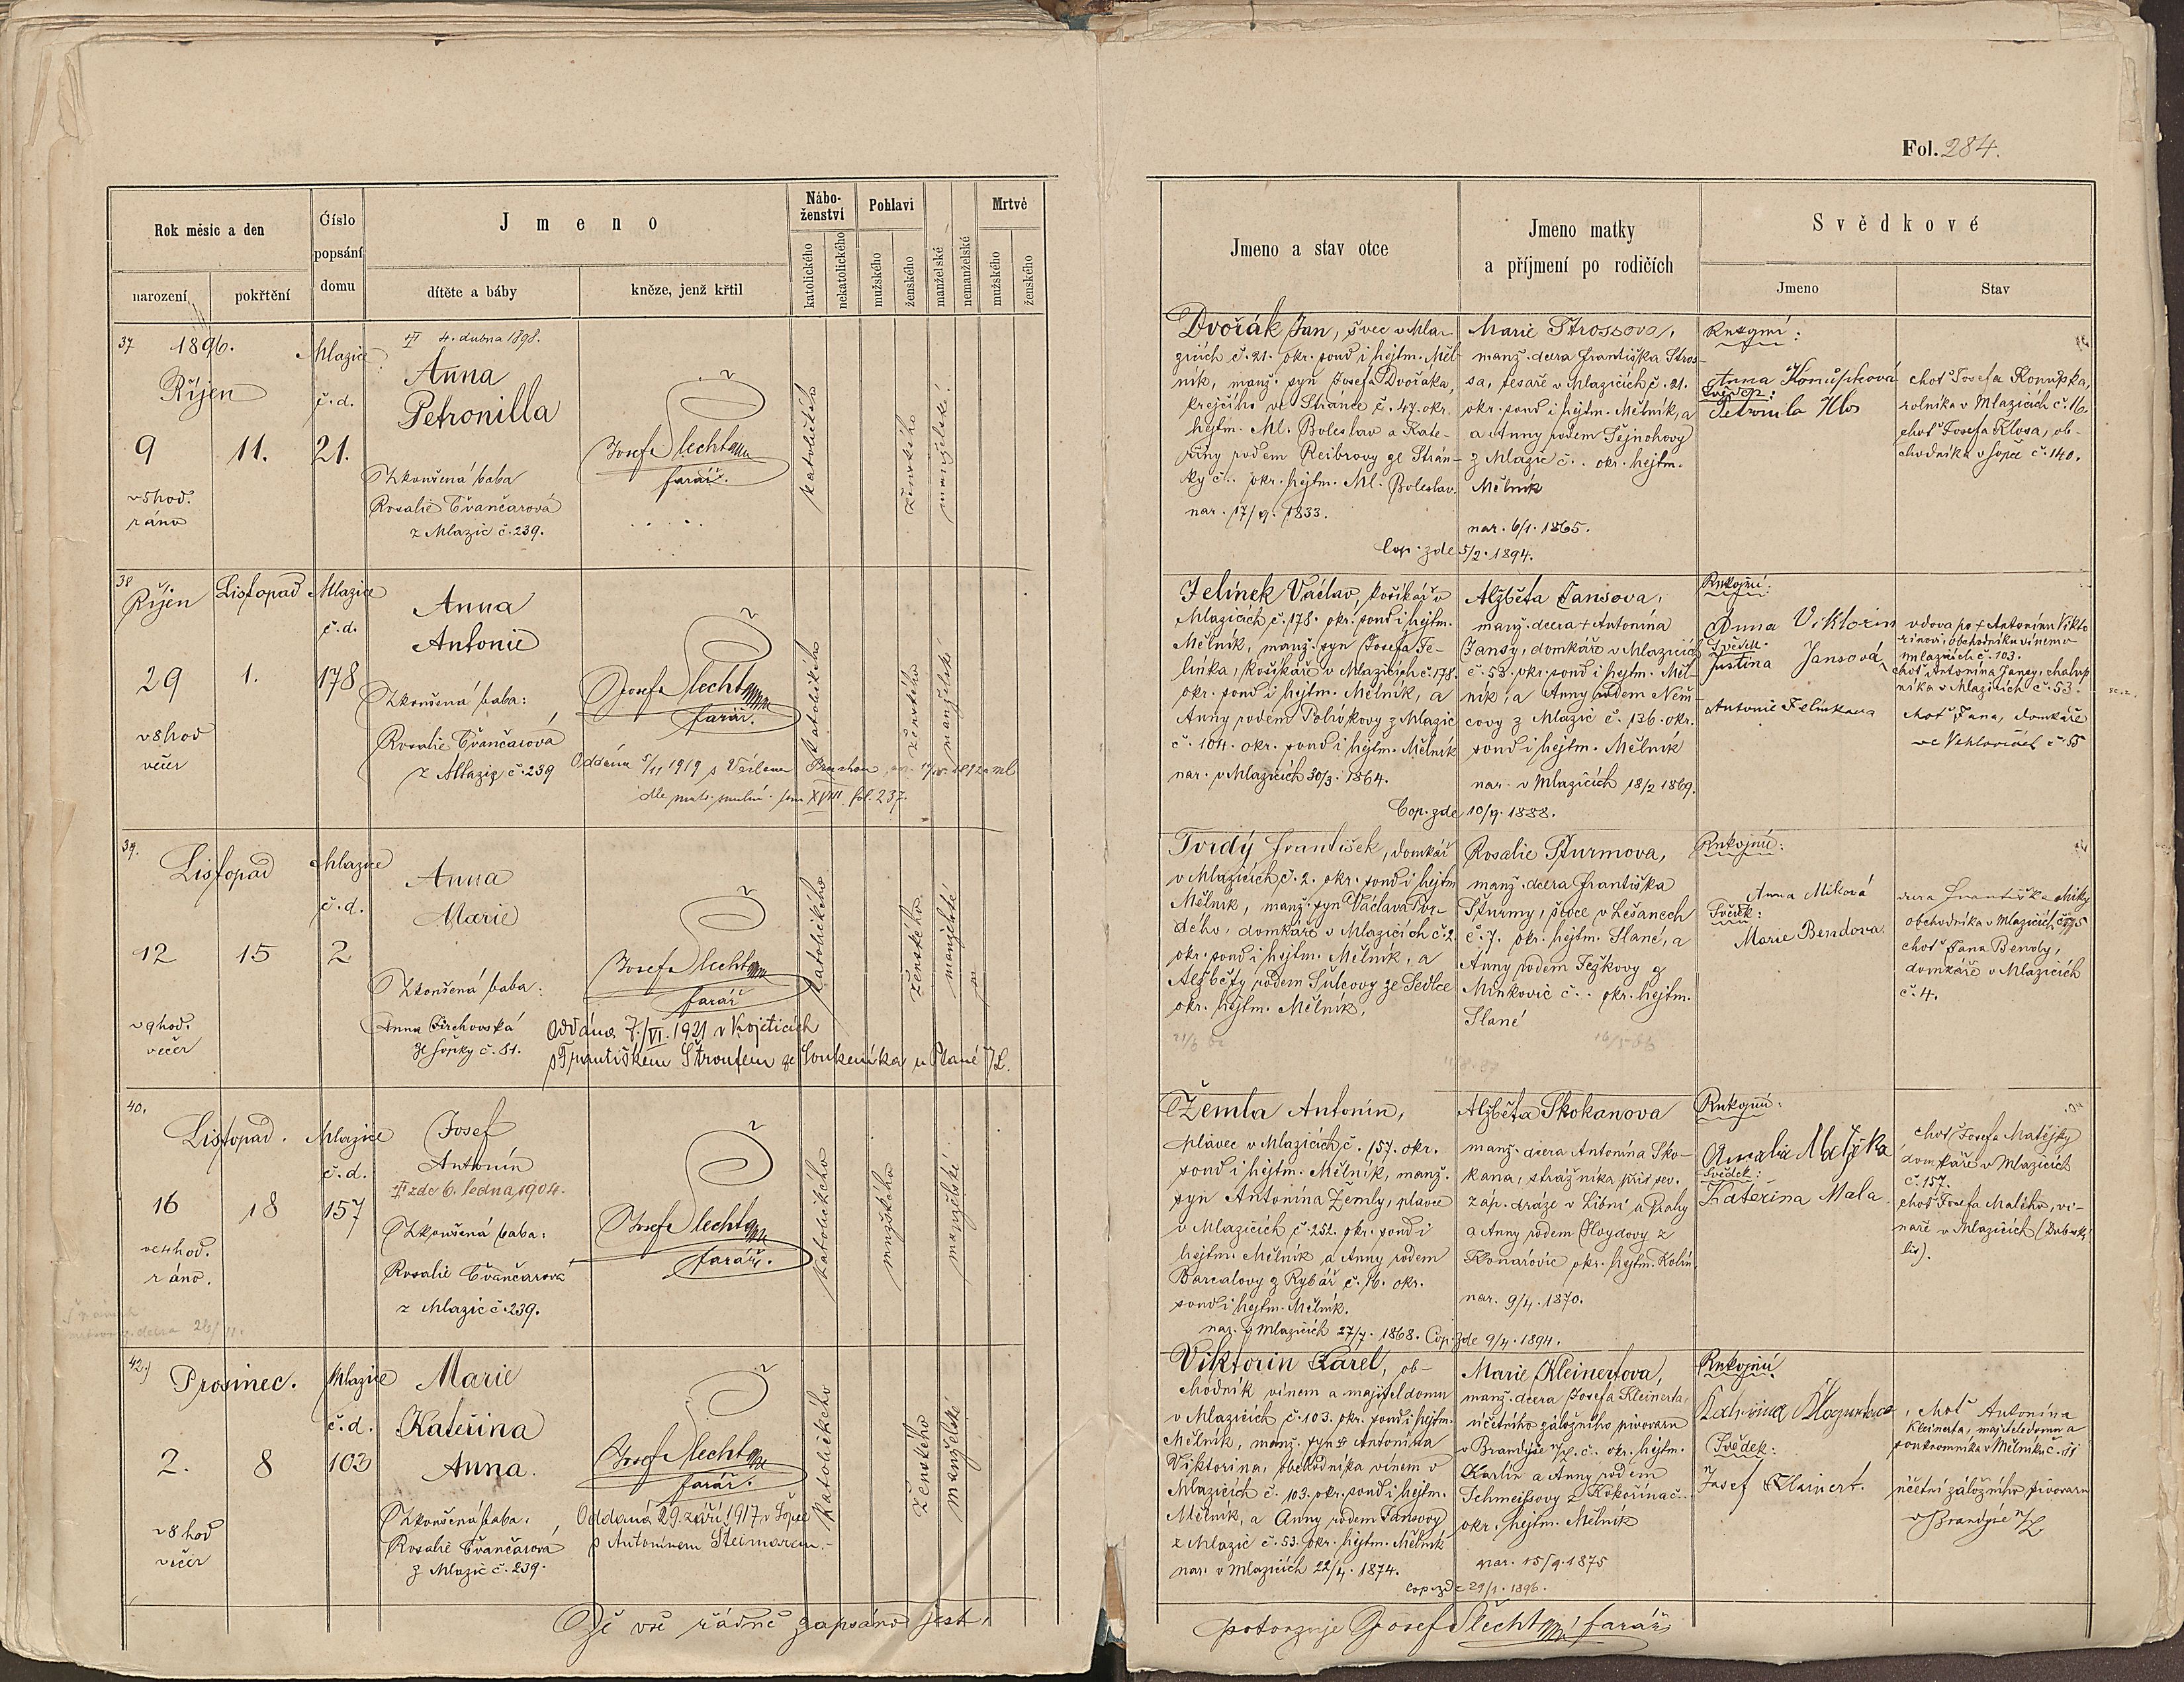 Fol. 284.
Rok měsíc a den
narození
pokřtění
Číslo
popsání
domu
Jmeno
dítěte a báby
kněze, jenž křtil
Nábo-
ženství
katolického
nekatolického
Pohlaví
mužského
ženského
manželské
nemanželské
Mrtvé
mužského
ženského
Jmeno a stav otce
Jmeno matky
a příjmení po rodičích
Svědkové
Jmeno
Stav
37
1896.
Říjen
9
11.
v 5 hod.
ráno
Mlazice
č. d.
21.
4. dubna 1898.
Anna
Petronilla
Zkoušená baba
Rosalie Čvančarová
z Mlazic č. 239.
Josef Šlechta
farář.
Dvořák Jan, švec v Mla-
zicích č. 21. okr. soud i hejtm. Měl-
ník, manž. syn Josefa Dvořáka,
krejčího ve Stránce č. 47. okr.
hejtm. Ml. Boleslav a Kate-
řiny rodem Reibrovy ze Strán-
ky č.. okr. hejtm. Ml. Boleslav.
nar. 17/9. 1833.
Marie Strossova,
manž. dcera Františka Stros-
sa, tesaře v Mlazicích č. 21.
okr. soud i hejtm. Mělník, a
a Anny rodem Šejnohovy
z Mlazic č.. okr. hejtm.
Mělník
nar. 6/1. 1865.
Cop. zde 5/2. 1894.
Anna
Svědek:
choť Josefa Konůpka,
rolníka v Mlazicích č. 16.
choť Josefa Klosa, ob-
chodníka v Šopce č. 140.
38
Říjen
Listopad
29
1.
v 8 hod
večer
Mlazice
č. d.
178
Anna
Antonie
Zkoušená baba:
Rosalie Čvančarová
z Mlazic č. 239
Josef Šlechta
farář.
katolického
ženského
manželské
Oddána 5/11 1919 s
fol. 237.
Jelínek Václav, košíkář v
Mlazicích č. 178. okr. soud i hejtm.
Mělník, manž. syn Josefa Je-
línka, košíkáře v Mlazicích č. 178.
okr. soud i hejtm. Mělník, a
Anny rodem z Mlazic
č. 104. okr. soud i hejtm. Mělník
nar. v Mlazicích 30/3. 1864.
Alžběta Jansova,
manž. dcera † Antonína
Jansy, domkáře v Mlazicích
č. 53. okr. soud i hejtm. Měl-
ník, a Anny rodem Něm-
covy z Mlazic č. 136. okr.
soud i hejtm. Mělník
nar. v Mlazicích 18/2 1869.
Cop. zde 10/9. 1888.
Rukojmí:
Anna Viktorin
Svědek.
Justina Jansová
Antonie Jelínkova
vdova po † Antonínu Vikto
rinovi, obchodníku vínem v
Mlazicích č. 103.
choť Antonína Jansy, chalup
níka v Mlazicích č. 53.
choť Jana, domkáře
č 55
39.
Listopad
12
15
v 9 hod.
večer
Mlazice
č. d.
2
Anna
Marie
Zkoušená baba:
Anna
ze Šopky č. 81.
Josef Šlechta
farář
katolického
ženského
manželské
Oddána 7./VI. 1921 v Kojeticích
s Františkem Štroufem ze Soukeníka u Plané
Tvrdý František, domkář
v Mlazicích č. 2. okr. soud i hejtm
Mělník, manž. syn Václava Tvr-
dého, domkáře v Mlazicích č. 2
okr. soud i hejtm. Mělník, a
Alžběty rodem Šulcovy ze Sedlce
okr. hejtm. Mělník.
Rosalie Šturmova,
manž. dcera Františka
Šturmy, ševce v Lešanech
č. 7. okr. hejtm. Slané, a
Anny rodem Ježkovy z
Minkovic č.. okr. hejtm.
Slané
Rukojmí:
Anna Miková
Svědek:
Marie Bendova.
dcera Františka Miky
obchodníka v Mlazicích
choť Jana Bendy,
domkáře v Mlazicích
č. 4.
40.
Listopad.
16
18
ve 4 hod.
ráno.
Mlazice
č. d.
157
Josef
Antonín
zde 6. ledna 1904.
Zkoušená baba:
Rosalie Čvančarová
z Mlazic č. 239.
Josef Šlechta
farář.
katolického
mužského
manželské
Žemla Antonín,
plavec v Mlazicích č. 157. okr.
soud i hejtm. Mělník, manž.
syn Antonína Žemly, plavce
v Mlazicích č. 252. okr. soud i
hejtm. Mělník a Anny rodem
Barcalovy z Rybář č. 16. okr.
soud i hejtm. Mělník.
nar. v Mlazicích 27/7. 1868. Cop. zde 9/4. 1894.
Alžběta Skokanova
manž. dcera Antonína Sko-
kana, strážníka při sev.
záp. dráze v Libni u Prahy
a Anny rodem z
Konárovic okr. hejtm. Kolín.
nar. 9/4. 1870.
Rukojmí:
Amalie Matějka
Svědek:
Kateřina Mala
choť Josefa Matějky
domkáře v Mlazicích
č. 157.
choť Josefa Malého, vi-
naře v Mlazicích
42.)
Prosinec.
2.
8
v 8 hod
večer
Mlazice
č. d.
103
Marie
Kateřina
Anna.
Zkoušená baba.
Rosalie Čvančarová
z Mlazic č. 239.
Josef Šlechta
farář.
katolického
ženského
manželské
Oddaná 29. září 1917 v Šopce
s Antonínem
Viktorin Karel, ob-
chodník vínem a majitel domu
v Mlazicích č. 103. okr. soud i hejtm.
Mělník, manž. syn † Antonína
Viktorina, obchodníka vínem v
Mlazicích č. 103. okr. soud i hejtm.
Mělník, a Anny rodem Jansovy
z Mlazic č. 53. okr. hejtm. Mělník
nar. v Mlazicích 22/4. 1874.
Marie Kleinertova,
manž. dcera Josefa Kleinerta,
účetního záložního pivovaru
v Brandýse n/L. č.. okr. hejtm.
Karlín a Anny rodem
Schmeißovy z Kokořína č..
okr. hejtm. Mělník
nar. 15/9. 1875
Cop. zde 29/1. 1896.
Rukojmí.
Svědek:
Josef Kleinert.
choť Antonína
Kleinerta, majitele domu a
soukromníka v Mělníku č.
účetní záložního pivovaru
v Brandýse n/L
Že vše řádně zapsáno jest,
potvrzuje Josef Šlechta, farář